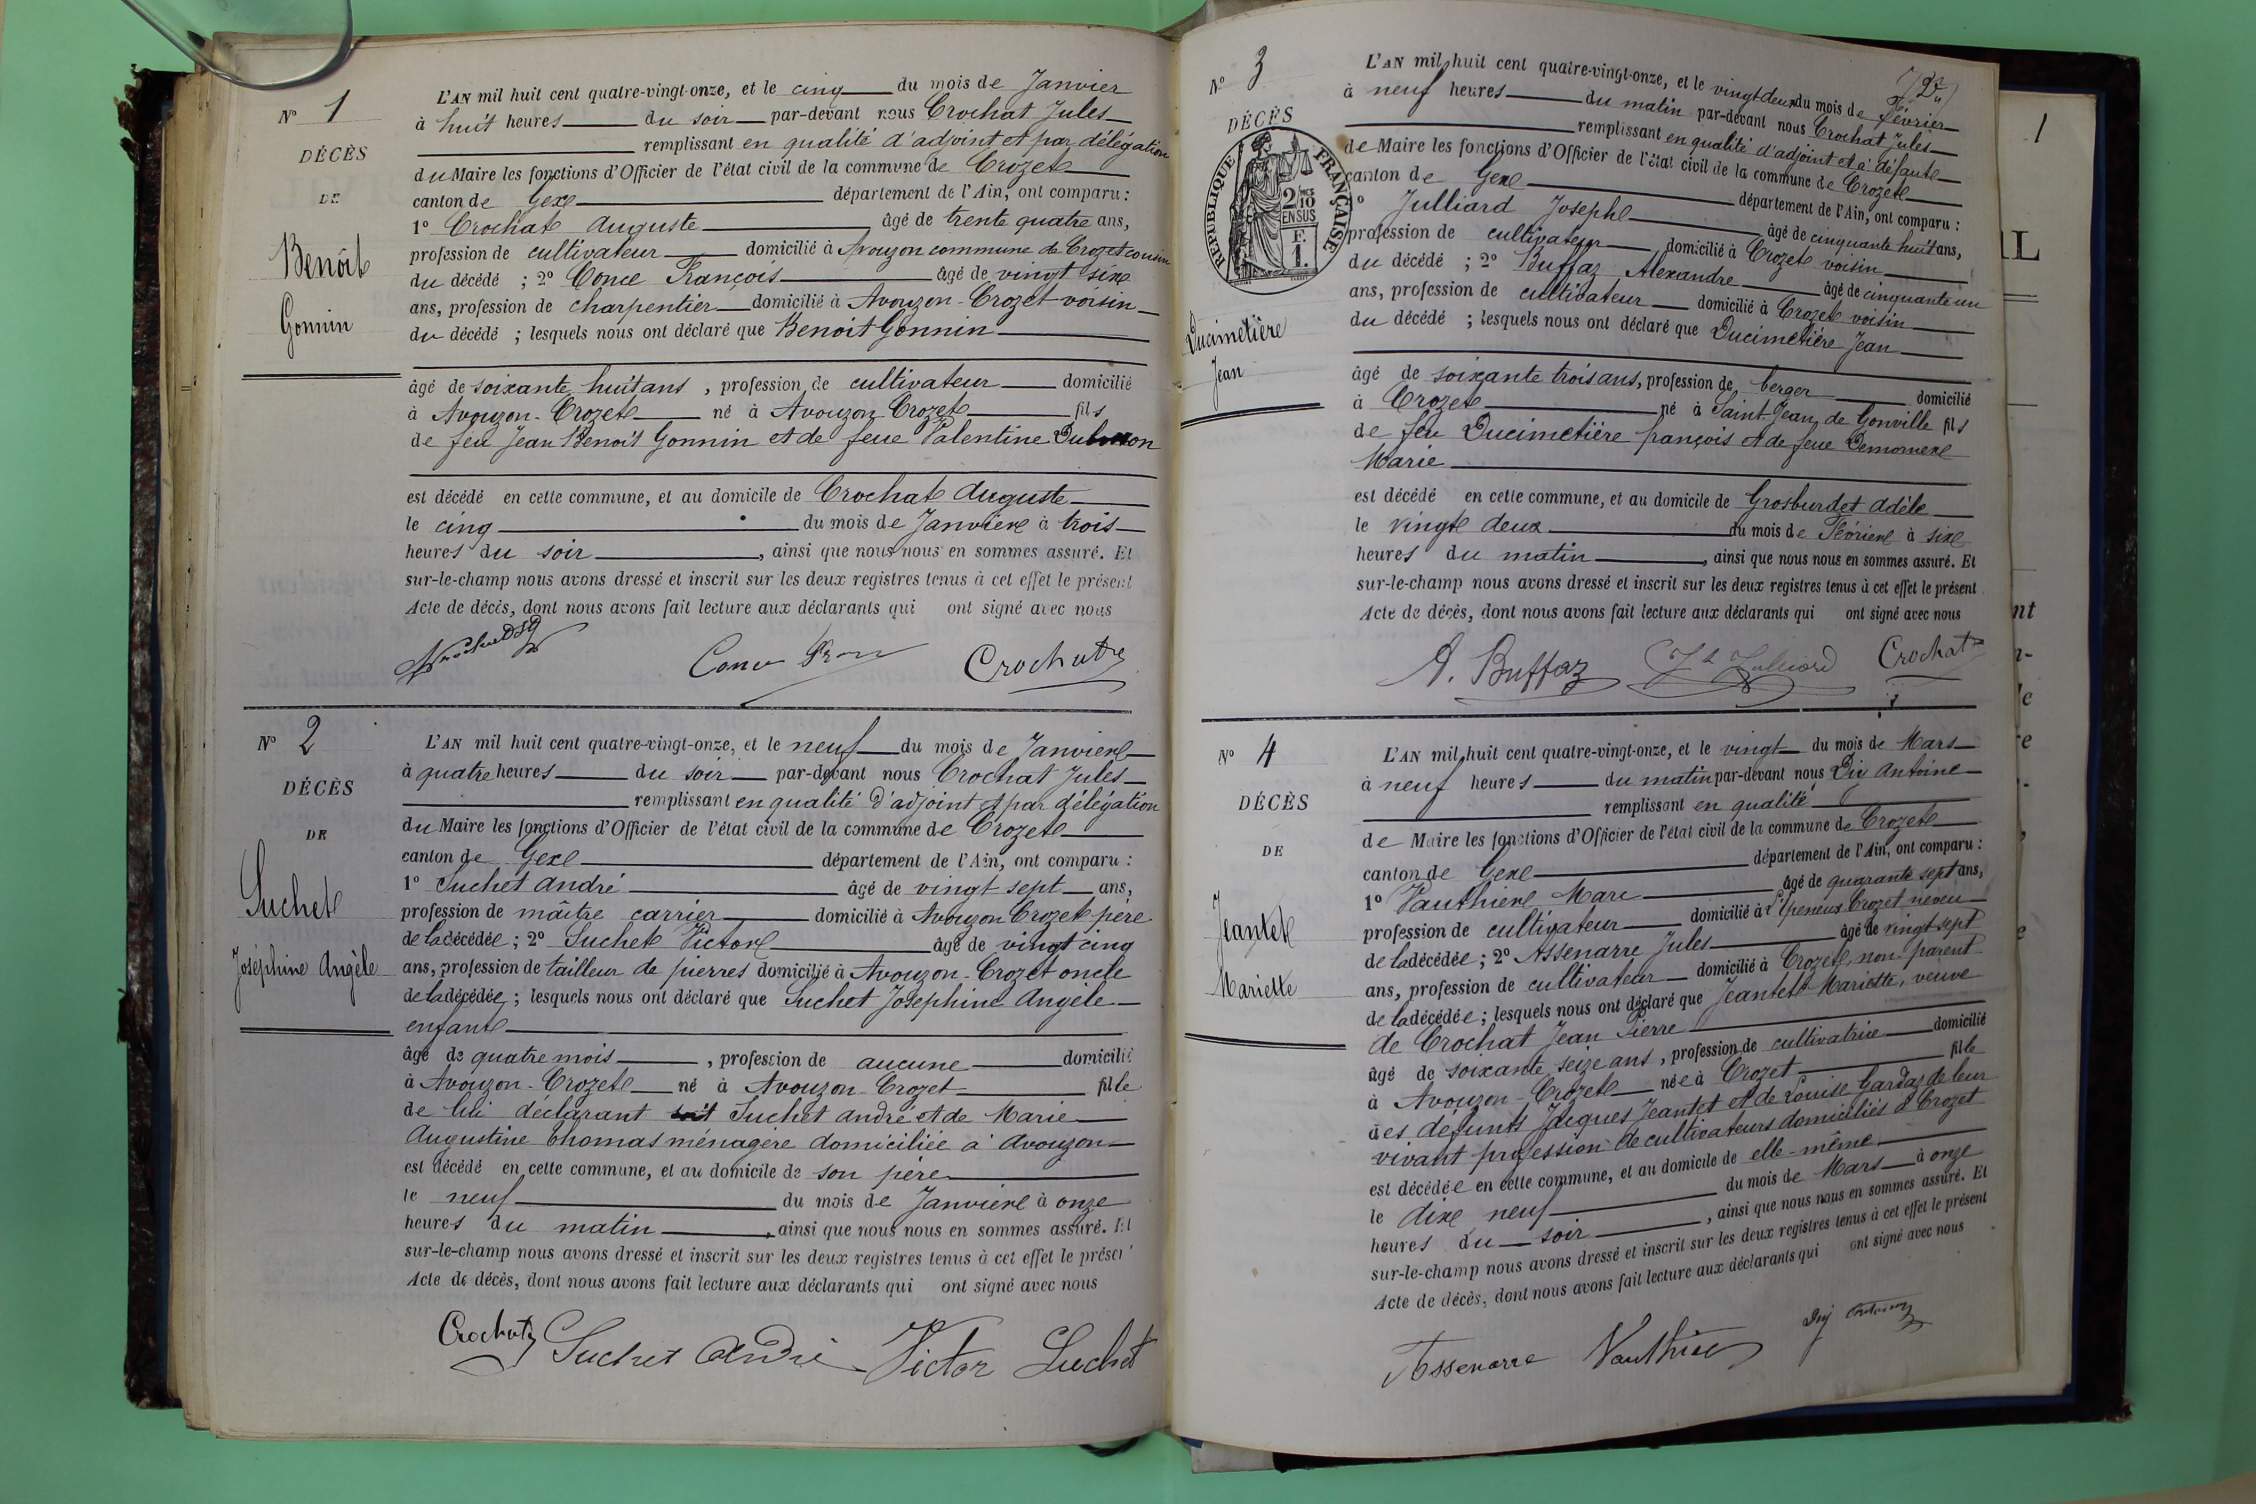 N° 1
DÉCÈS
DE
Benoît
Gonnin
L'AN mil huit cent quatre-vingt-onze, et le cinq du mois de Janvier
à huit heures du soir par-devant nous Crochat Jules
remplissant en qualité d'adjoint et par délégation
du Maire les fonctions d'Officier de l'état civil de la commune de Crozet
canton de Gex département de l'Ain, ont comparu :
1° Crochat Auguste âgé de trente quatre ans,
profession de cultivateur domicilié à Avouzon commune de Crozet cousin
du décédé ; 2° François âgé de vingt six
ans, profession de charpentier domicilié à Avouzon-Crozet voisin
du décédé ; lesquels nous ont déclaré que Benoit Gonnin
âgé de soixante huit ans, profession de cultivateur domicilié
à Avouzon-Crozet né à Avouzon Crozet fils
de feu Jean Benoit Gonnin et de feue Valentine
est décédé en cette commune, et au domicile de Crochat Auguste
le cinq du mois de Janvier à trois
heures du soir, ainsi que nous nous en sommes assuré. Et
sur-le-champ nous avons dressé et inscrit sur les deux registres tenus à cet effet le présent
Acte de décès, dont nous avons fait lecture aux déclarants qui ont signé avec nous
Crochat
N° 2
DÉCÈS
DE
Suchet
Joséphine Angèle
L'AN mil huit cent quatre-vingt-onze, et le neuf du mois de Janvier
à quatre heures du soir par-devant nous Crochat Jules
remplissant en qualité d'adjoint et par délégation
du Maire les fonctions d'Officier de l'état civil de la commune de Crozet
canton de Gex département de l'Ain, ont comparu :
1° Suchet André âgé de vingt sept ans,
profession de maître carrier domicilié à Avouzon Crozet père
de la décédée ; 2° Suchet Victor âgé de vingt cinq
ans, profession de tailleur de pierres domicilié à Avouzon-Crozet oncle
de la décédée ; lesquels nous ont déclaré que Suchet Josephine Angèle
enfant
âgé de quatre mois, profession de aucune domicilié
à Avouzon-Crozet né à Avouzon-Crozet fille
de lui déclarant Suchet André et de Marie
Augustine Thomas ménagère domiciliée à Avouzon
est décédé en cette commune, et au domicile de son père
le neuf du mois de Janvier à onze
heures du matin, ainsi que nous nous en sommes assuré. Et
sur-le-champ nous avons dressé et inscrit sur les deux registres tenus à cet effet le présen
Acte de décès, dont nous avons fait lecture aux déclarants qui ont signé avec nous
Crochat Suchet André Victor Suchet
N° 3
DÉCÈS
RÉPUBLIQUE FRANÇAISE
2/10 EN SUS
F.
1.
Ducimetière
Jean
L'AN mil huit cent quatre-vingt-onze, et le vingt deux du mois de Février
à neuf heures du matin par-devant nous Crochat Jules
remplissant en qualité d'adjoint et à défaut
de Maire les fonctions d'Officier de l'état civil de la commune de Crozet
canton de Gex département de l'Ain, ont comparu :
° Julliard Joseph âgé de cinquante huit ans,
profession de cultivateur domicilié à Crozet voisin
du décédé ; 2° Buffaz Alexandre âgé de cinquante un
ans, profession de cultivateur domicilié à Crozet voisin
du décédé ; lesquels nous ont déclaré que Ducimetière Jean
âgé de soixante trois ans, profession de berger domicilié
à Crozet né à Saint-Jean de Gonville fils
de feu Ducimetière françois et de feue
Marie
est décédé en cette commune, et au domicile de Grosburdet Adèle
le vingt deux du mois de Février à six
heures du matin, ainsi que nous nous en sommes assuré. Et
sur-le-champ nous avons dressé et inscrit sur les deux registres tenus à cet effet le présent
Acte de décès, dont nous avons fait lecture aux déclarants qui ont signé avec nous
A. Buffaz Julliard Crochat
N° 4
DÉCÈS
DE
Jeantet
Mariette
L'AN mil huit cent quatre-vingt-onze, et le vingt du mois de Mars
à neuf heures du matin par-devant nous Antoine
remplissant en qualité
de Maire les fonctions d'Officier de l'état civil de la commune de Crozet
canton de Gex département de l'Ain, ont comparu :
1° Vauthier Marc âgé de quarante sept ans,
profession de cultivateur domicilié à Crozet neveu
de la décédée ; 2° Assenarre Jules âgé de vingt sept
ans, profession de cultivateur domicilié à Crozet, non parent
de la décédée ; lesquels nous ont déclaré que Jeantet Mariette, veuve
de Crochat Jean Pierre
âgé de soixante seize ans, profession de cultivatrice domicilié
à Avouzon-Crozet née à Crozet fille
des défunts Jacques Jeantet et de Louise Gardaz de leur
vivant profession de cultivateurs domiciliés à Crozet
est décédée en cette commune, et au domicile de elle-même
le dix neuf du mois de Mars à onze
heures du soir, ainsi que nous nous en sommes assuré. Et
sur-le-champ nous avons dressé et inscrit sur les deux registres tenus à cet effet le présent
Acte de décès, dont nous avons fait lecture aux déclarants qui ont signé avec nous
Assenarre Vauthier
1